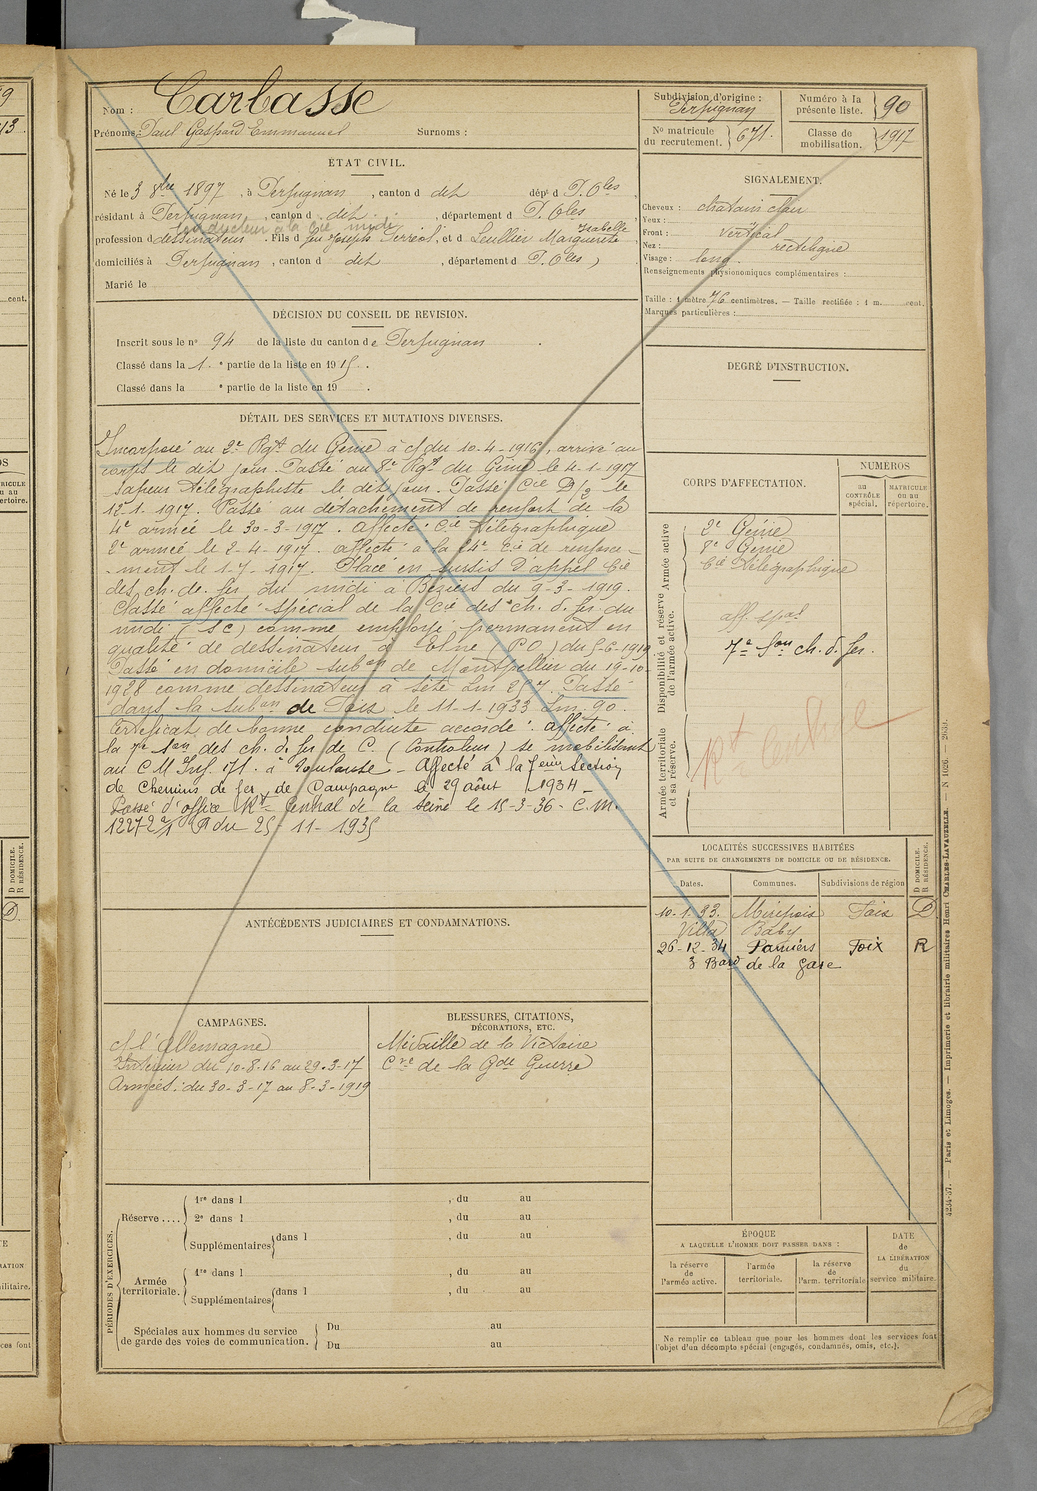 Nom : Carbasse
Prénoms : Paul Gaspard Emmanuel Surnoms :
ÉTAT CIVIL.
Né le 3 8bre 1897, à Perpignan, canton d dit dépt d P. Oles,
résidant à Perpignan, canton d dit, département d P. Oles
Conducteur à la Cie midi Isabelle
profession d dessinateur. Fils d feu Joseph Ferréol, et d Leullier Marguerite,
domiciliés à Perpignan, canton d dit, département d P. Oles)
Marié le
DÉCISION DU CONSEIL DE REVISION.
Inscrit sous le n° 94 de la liste du canton de Perpignan.
Classé dans la 1.e partie de la liste en 1915.
Classé dans la e partie de la liste en 19 .
DÉTAIL DES SERVICES ET MUTATIONS DIVERSES.
Incorporé au 2e Rgt du Génie à c/ du 10-4-1916, arrivé au
corps le dit jour. Passé au 8e Rgt du Génie le 4-1-1917
sapeur télégraphiste le dit jour. Passé Cie D/2 le
12-1-1917. Passé au détachement de renfort de la
4e armée le 30-3-1917. affecté Cie télégraphique
2e armée le 2-4-1917. affecté à la 24e Cie de renforce-
-ment le 1-7-1917. Placé en sursis d'appel Cie
des ch. de fer du midi à Béziers du 9-3-1919.
Classé affecté spécial de la Cie des ch. d. fer du
midi (sc) comme employé permanent en
qualité de dessinateur à Elne (PO) du 5-6-1919
Passé en domicile subon de Montpellier du 19-10-
1928 comme dessinateur à Sète Lm 257. Passé
dans la subon de Foix le 11-1-1933 Lm 90.
Certificat de bonne conduite accordé. affecté à
la 7e Son des ch. d. fer de C. (Controleur) se mobilisant
au C M Inf. 171. à Toulouse - Affecté à la 7eme Section
de Chemins de fer de Campagne le 29 août 1934 -
Passé d'office Rt Central de la Seine le 15-3-36- C.M.
1227-2/1 du 25-11-1935
ANTÉCÉDENTS JUDICIAIRES ET CONDAMNATIONS.
CAMPAGNES.
c/ l'Allemagne
Intérieur du 10-8-16 au 29-3-17
Armées : du 30-3-17 au 8-3-1919
BLESSURES, CITATIONS,
DÉCORATIONS, ETC.
Médaille de la Victoire
Cve de la Gde Guerre
PÉRIODES D'EXERCICES.
Réserve ....
1re dans l , du au
2e dans l , du au
Supplémentaires dans l , du au
Armée territoriale.
1re dans l , du au
Supplémentaires dans l , du au
Spéciales aux hommes du service
de garde des voies de communication.
Du au
Du au
Subdivision d'origine :
Perpignan
N° matricule
du recrutement. 671.
Numéro à la
présente liste. 90
Classe de
mobilisation. 1917
SIGNALEMENT.
Cheveux : chatain clair
Yeux : "
Front : vertical
Nez : rectiligne
Visage : long.
Renseignements physionomiques complémentaires :
Taille : 1 mètre 76 centimètres. — Taille rectifiée : 1 m. cent.
Marques particulières :
DEGRÉ D'INSTRUCTION.
CORPS D'AFFECTATION.
NUMÉROS
au CONTRÔLE spécial.
MATRICULE ou au répertoire.
Armée active
2e Génie
8e Génie
Cie télégraphique
Disponibilité et réserve
de l'armée active.
aff. spal
7e Son ch. d. fer.
Armée territoriale
et sa réserve.
Rt Central
LOCALITÉS SUCCESSIVES HABITÉES
PAR SUITE DE CHANGEMENTS DE DOMICILE OU DE RÉSIDENCE.
D DOMICILE.
R RÉSIDENCE.
Dates. Communes. Subdivisions de région
10-1-33. Mirepoix Foix D
Villa Baby
26-12-34 Pamiers Foix R
3 Bard de la gare
ÉPOQUE
A LAQUELLE L'HOMME DOIT PASSER DANS :
la réserve
de
l'armée active.
l'armée
territoriale.
la réserve
de
l'arm. territoriale
DATE
de
LA LIBÉRATION
du
service militaire.
Ne remplir ce tableau que pour les hommes dont les services font
l'objet d'un décompte spécial (engagés, condamnés, omis, etc.).
4234-37. — Paris et Limoges. — Imprimerie et librairie militaires Henri CHARLES-LAVAUZELLE. — N 1026.